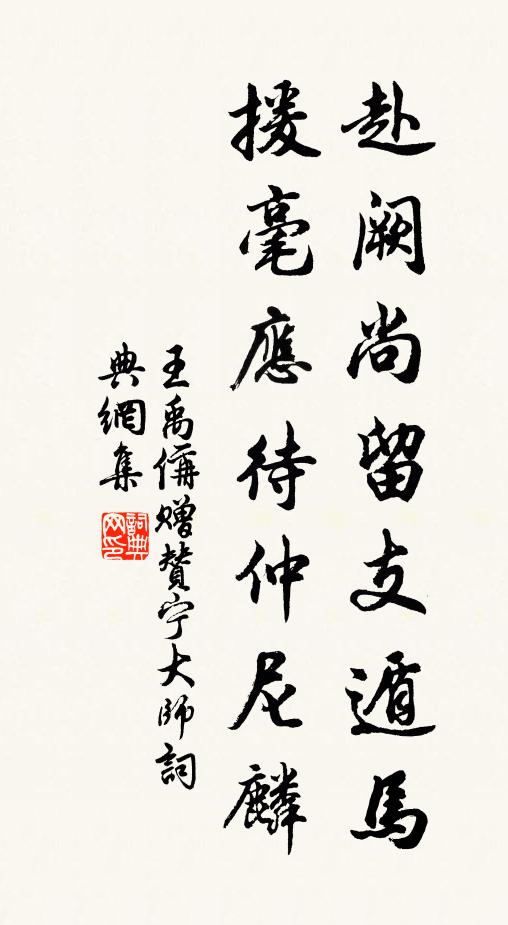 赴阙尚留支遁馬
援毫應待仲尼麟
王禹偁贈賛宁大師詞
典網集
詞典
网印